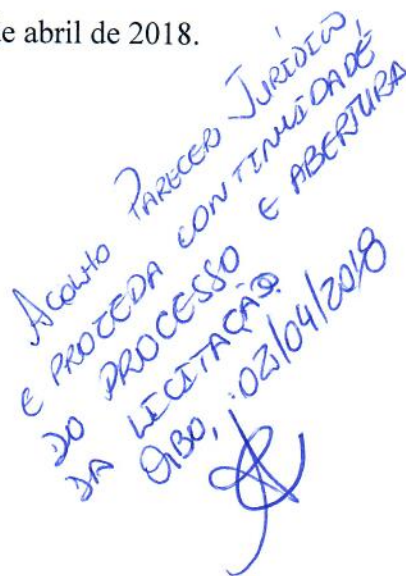 de abril de 2018.
Acolho Parecer Jurídico,
e proceda continuidade
do processo e abertura
da licitação.
02/04/2018